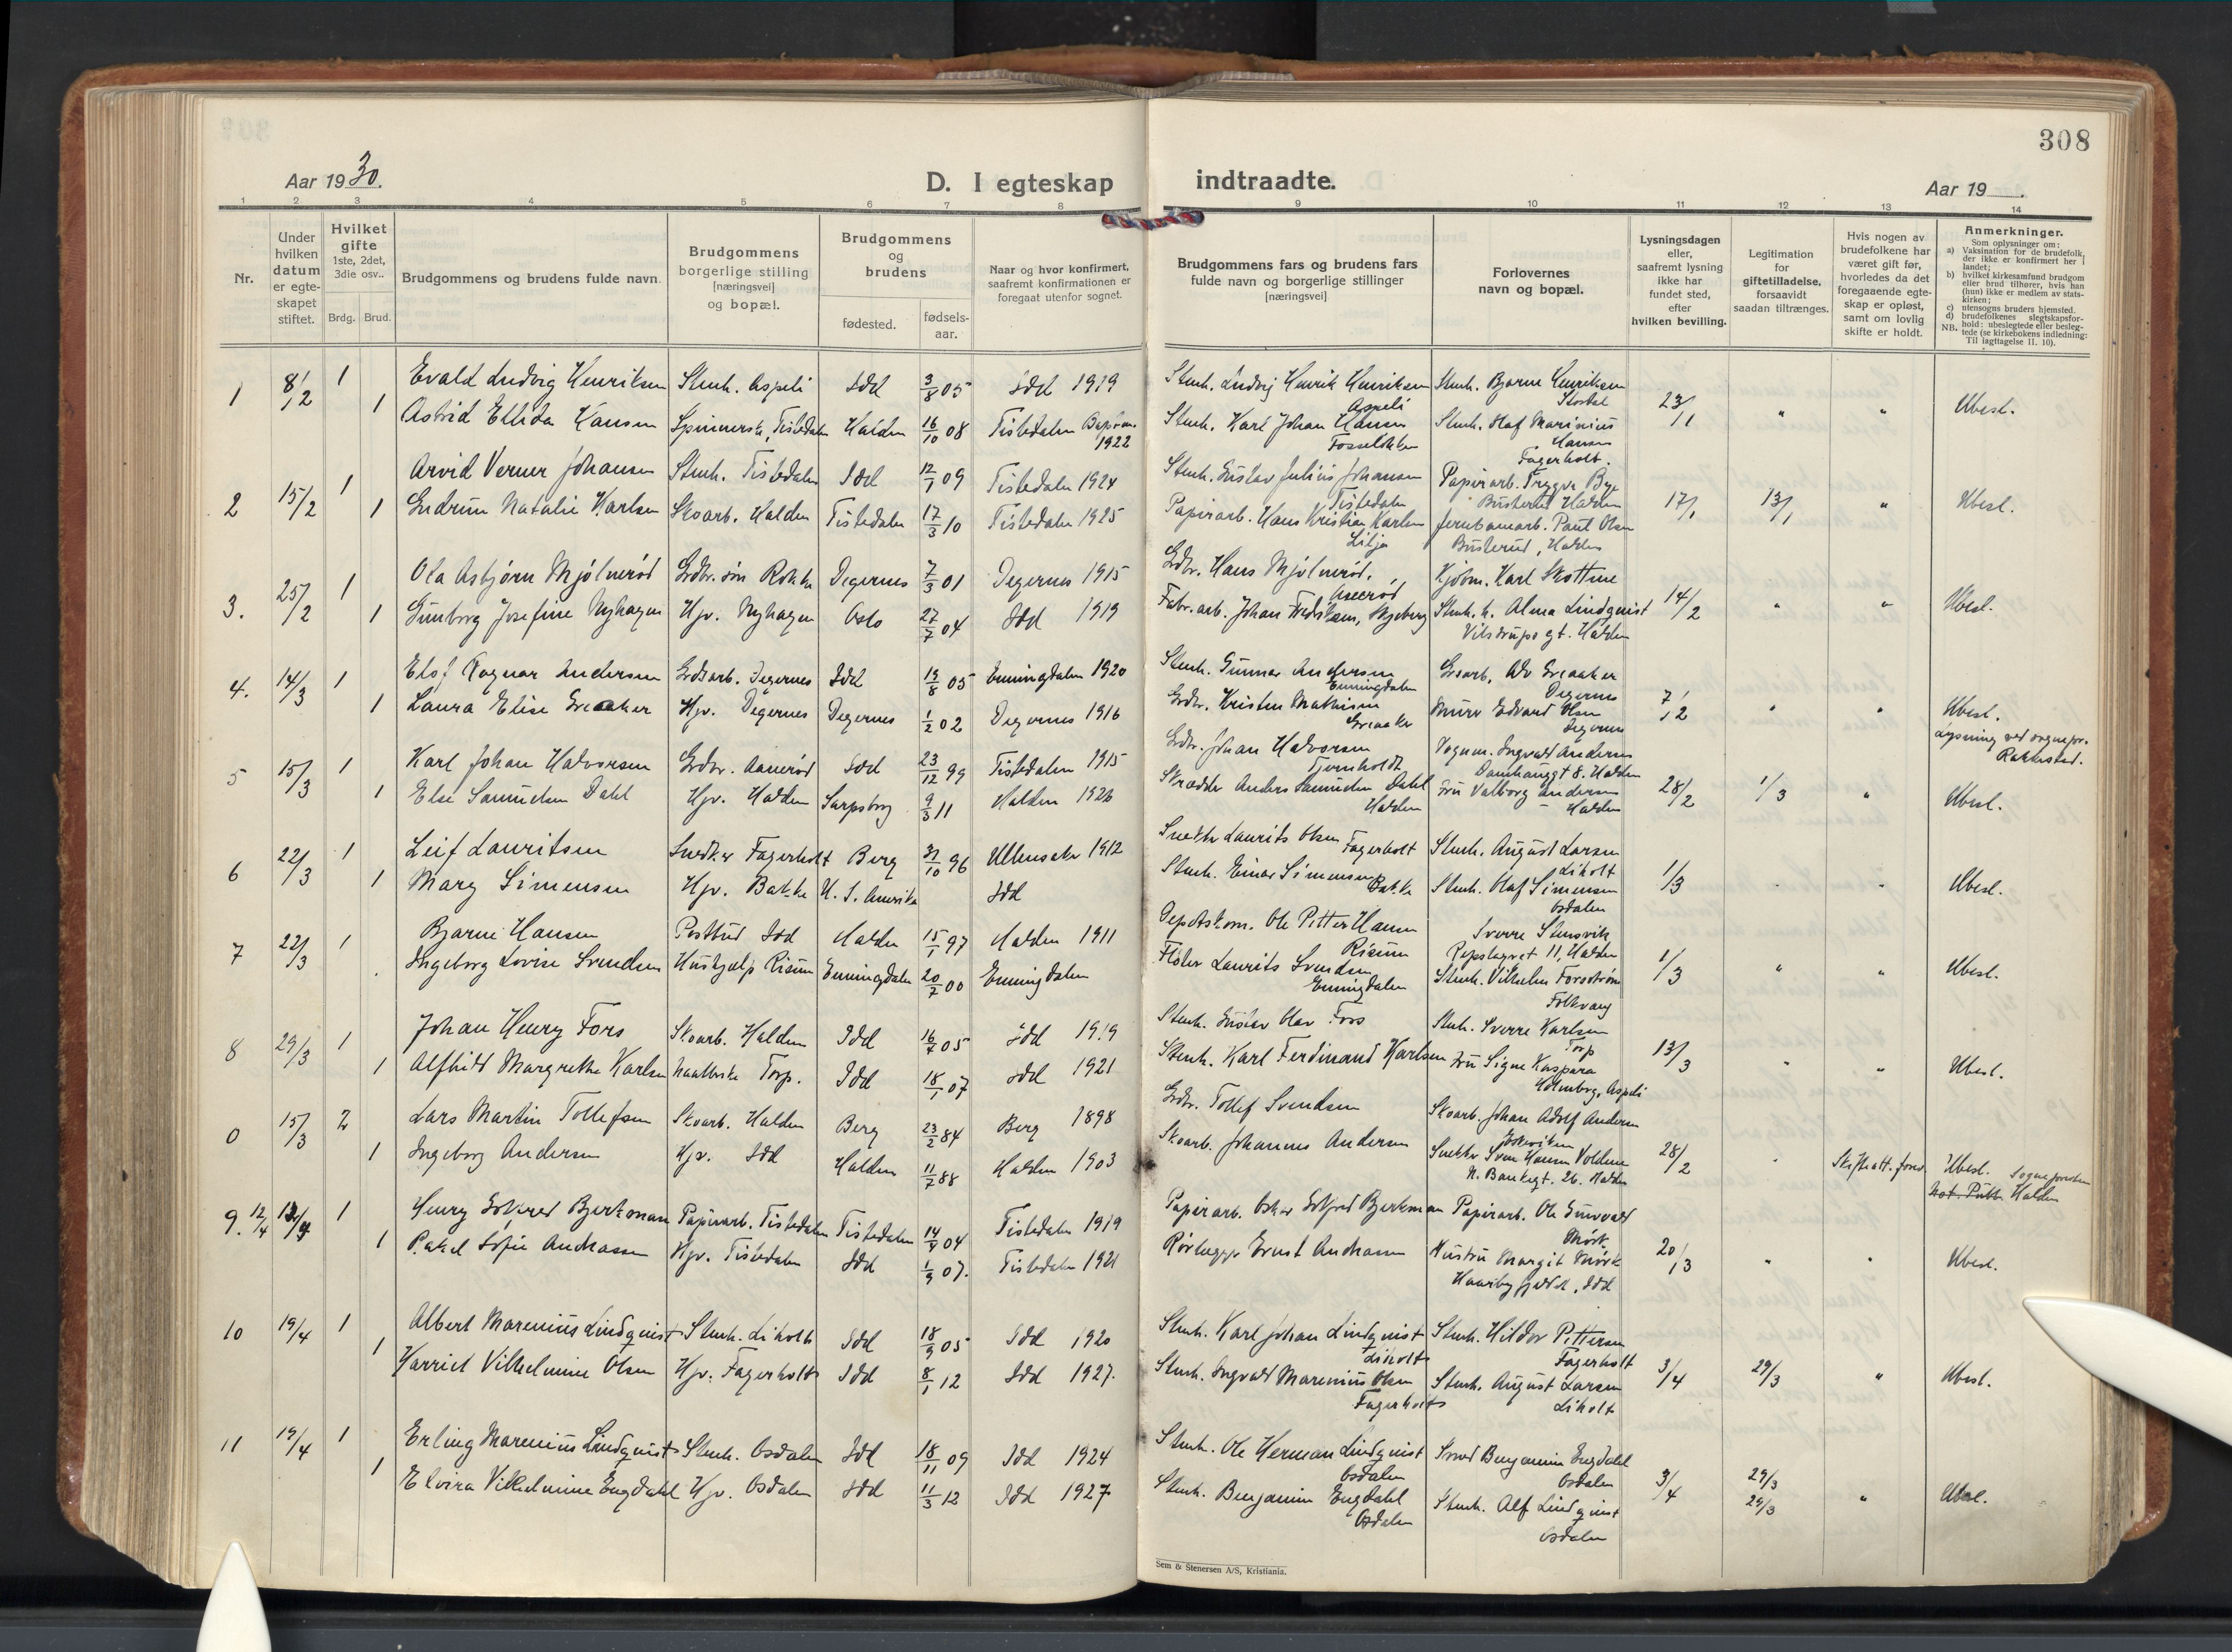 308
Aar 1930.
D. I egteskap indtraadte.
Aar 19
1 2 3 4 5 6 7 8 9 10 11 12 13 14
Nr.
Under hvilken datum er egte-skapet stiftet.
Hvilket gifte 1ste, 2det, 3die osv..
Brdg. Brud.
Brudgommens og brudens fulde navn.
Brudgommens borgerlige stilling [næringsvei] og bopæl.
Brudgommens og brudens
fødested.
fødsels-aar.
Naar og hvor konfirmert, saafremt konfirmationen er foregaat utenfor sognet.
Brudgommens fars og brudens fars fulde navn og borgerlige stillinger [næringsvei]
Forlovernes navn og bopæl.
Lysningsdagen eller, saafremt lysning ikke har fundet sted, efter hvilken bevilling.
Legitimation for giftetilladelse, forsaavidt saadan tiltrænges.
Hvis nogen av brudefolkene har været gift før, hvorledes da det foregaaende egte-skap er opløst, samt om lovlig skifte er holdt.
Anmerkninger.
Som oplysninger om:
a) Vaksination for de brudefolk, der ikke er konfirmert her i landet;
b) hvilket kirkesamfund brudgom eller brud tilhører, hvis han (hun) ikke er medlem av stats-kirken;
c) utensogns bruders hjemsted.
d) brudefolkenes slegtskapsfor-hold: ubeslegtede eller besleg-tede (se kirkebokens indledning: Til iagttagelse II. 10).
NB.
1 8/2 1 Evald Ludvig Henriksen Stenh. Aspeli Idd 3/8 05 Idd 1919 Stenh. Ludvig Henrik Henriksen Aspeli Stenh. Bjarne Henriksen
1 Astrid Ellida Hansen Spinnerske, Tistedalen Halden 16/10 08 Tistedalen 1922 Stenh. Karl Johan Hansen Stenh. Olaf Marinius Hansen Fagerholt. 23/1 " " Ubesl.
2 15/2 1 Arvid Verner Johansen Stenh. Tistedalen Idd 12/1 09 Tistedalen 1924 Stenh. Gustav Julius Johansen Tistedalen Papirarb. Trygve Bye Busterud Halden
1 Gudrun Natalie Karlsen Skoarb. Halden Tistedalen 17/3 10 Tistedalen 1925 Papirarb. Hans Kristian Karlsen Lilja Jernbanearb. Paul Olsen Busterud, Halden 17/1 13/1 " Ubesl.
3. 25/2 1 Ola Asbjørn Mjølnerød Grdbr. søn Rokke Degernes 7/3 01 Degernes 1915 Grdbr. Hans Mjølnerød. Kjøbm. Karl Skottene
1 Gunborg Josefine Nyhagen Hjv. Nyhagen Oslo 27/7 04 Idd 1919 Fabr. arb. Johan Stenh. h. Alma Lindquist Vilstrups gt. Halden 14/2 " " Ubesl.
4. 14/3 1 Elof Ragnar Andersen Grdsarb. Degernes Idd 19/8 05 Enningdalen 1920 Stenh. Gunnar Andersen Enningdalen Degernes
1 Laura Elise Greaaker Hjv. Degernes Degernes 1/2 02 Degernes 1916 Grdbr. Kristen Mathisen Greaaker Murer Edvard Olsen Degernes 7/2 " " Ubesl.
Lysning ved sognepr. Rakkestad.
5 15/3 1 Karl Johan Halvorsen Grdbr. Aanerød Idd 23/12 99 Tistedalen 1915 Grdbr. Johan Halvorsen Tjernholdt Vognm. Ingvald Andersen Halden
1 Else Samuelsen Dahl Hjv. Halden Sarpsborg 9/3 11 Halden 1926 Skrædder Anders Samuelsen Dahl Halden Fru Valborg Andersen Halden 28/2 1/3 " Ubesl.
6 22/3 1 Leif Lauritsen Snedker Fagerholt Berg 31/10 96 Ullensaker 1912 Snekker Laurits Olsen Fagerholt Stenh. August Larsen Liholt
1 Mary Simensen Hjv. Bakke U. S. Amerika Idd Stenh. Einar Simensen Bakke Stenh. Olaf Simensen Osdalen 1/3 " " Ubesl.
7 22/3 1 Bjarne Hansen Postbud Idd Halden 15/1 97 Halden 1911 Depotskom. Ole Pitter Hansen Risum Sverre Stensvik Repslagergt 11, Halden
Ingeborg Lovise Svendsen Hushjælp Risum Enningdalen 20/7 00 Enningdalen Fløter Laurits Svendsen Enningdalen Stenh. Vilhelm Forsstrøm Folkvang 1/3 " " Ubesl.
8 29/3 1 Johan Henry Fors Skoarb. Halden Idd 16/7 05 Idd 1919 Stenh. Gustav Olav Fors Stenh. Sverre Karlsen Torp
1 Alfhild Margrethe Karlsen Torp. Idd 18/1 07 Idd 1921 Stenh. Karl Ferdinand Karlsen Fru Signe Kaspara Holmberg, Aspeli 13/3 " " Ubesl.
0 15/3 2 Lars Martin Tollefsen Skoarb. Halden Berg 23/2 84 Berg 1898 Grdbr. Tollef Svendsen Skoarb. Johan Adolf Andersen
1 Ingeborg Andersen Hjv. Idd Halden 11/7 88 Halden 1903 Skoarb. Johannes Andersen Snekker Sven Hansen Voldene N. Bankegt. 26. Halden 28/2 " Skifteatt. forev. Ubesl. Sognepresten Halden
9. 12/4 1 Henry Gotfred Bjerkman Papirarb. Tistedalen Tistedalen 14/4 04 Tistedalen 1919 Papirarb. Oskar Gotfred Bjerkman Papirarb. Ole Gunvald Mørk
1 Rakel Sofie Andreassen Hjv. Tistedalen Idd 1/9 07. Tistedalen 1921 Rørlegger Ernst Andreassen Hustru Margit Mørk Haarbyfjeldet, Idd 20/3 " " Ubesl.
10 19/4 1 Albert Marenius Lindquist Stenh. Liholt Idd 18/9 05 Idd 1920 Stenh. Karl Johan Lindquist Liholt Stenh. Hildor Pettersen Fagerholt
1 Harriet Vilhelmine Olsen Hjv. Fagerholt Idd 8/1 12 Idd 1927. Stenh. Ingvald Marenius Olsen Fagerholt Stenh. August Larsen Liholt 3/4 29/3 " Ubesl.
11 19/4 1 Erling Marenius Lindquist Stenh. Osdalen Idd 18/11 09 Idd 1924 Stenh. Ole Herman Lindquist Osdalen Benjamin Engdahl Osdalen
1 Elvira Vilhelmine Engdahl Hjv. Osdalen Idd 11/3 12 Idd 1927 Stenh. Benjamin Engdahl Osdalen Stenh. Alf Lindquist Osdalen 3/4 29/3 29/3 " Ubesl.
Sem & Stenersen A/S, Kristiania.